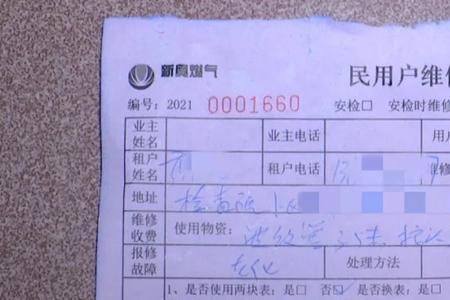 新奥燃气
民用户维
编号：2021 0001660 安检□ 安检时维修
业主姓名 业主电话 用
租户姓名 租户电话 修
地址 检查院
维修收费 使用物资： 波纹管
报修故障 处理方法
1、是否使用两块表：是□ 否☑ 是否换表：